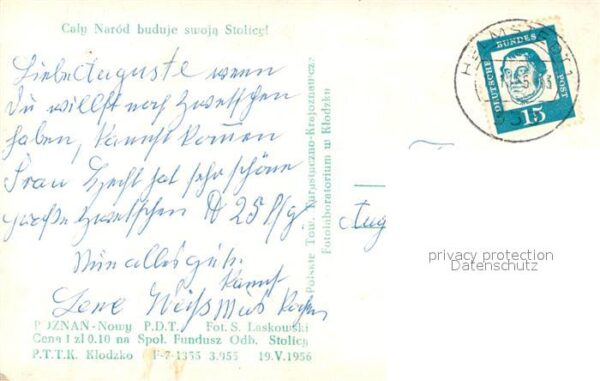 Cały Naród buduje swoją Stolicę!
Liebe Auguste wenn
du willst noch Zwetschen
haben, kannst kommen
Frau Hecht hat sehr schöne
große Zwetschen 25 Pfg.
Nun alles gute.
kannst
Lene Mus kochen
POZNAŃ-Nowy P.D.T. Fot. S. Laskowski
Cena 1 zł 0.10 na Społ. Fundusz Odb. Stolicy
P.T.T.K. Kłodzko F-7-1355 3.955 19.V.1956
Polskie Tow. Turystyczno-Krajoznawcze
Fotolaboratorium w Kłodzku
HELMSTEDT
DEUTSCHE BUNDESPOST
15
Aug
privacy protection
Datenschutz